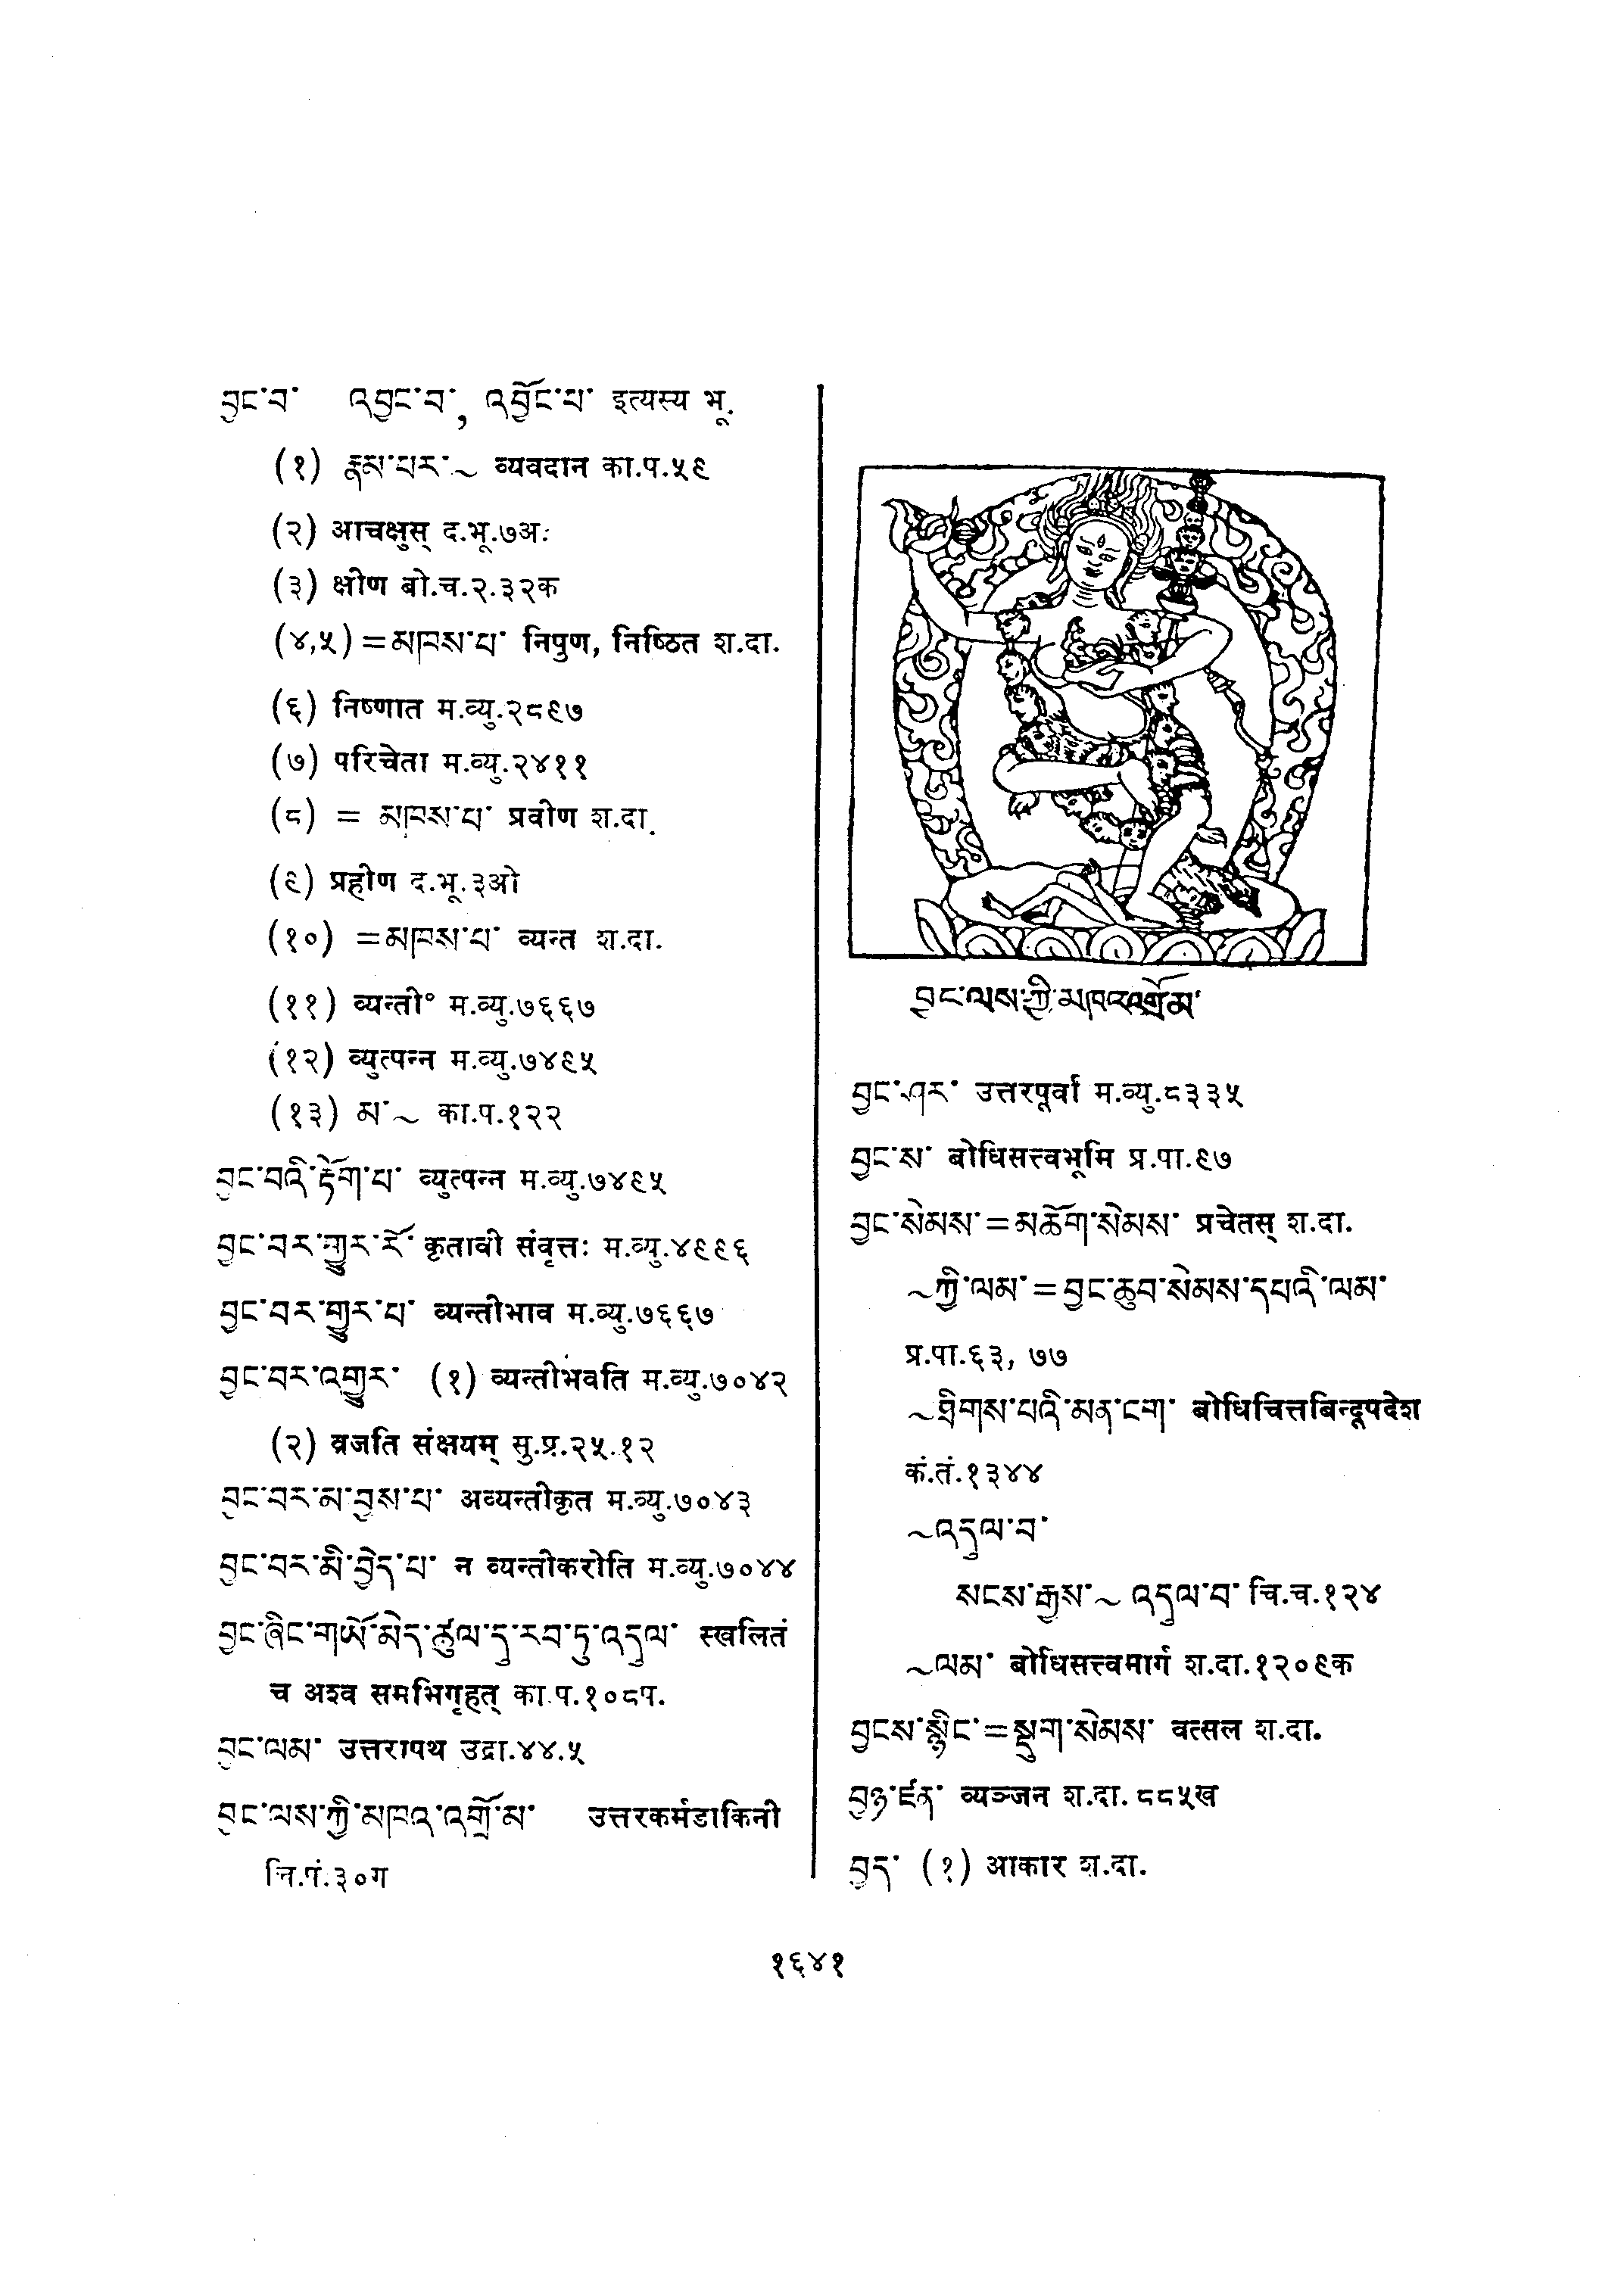 བྱང་བ་ འབྱང་བ་, འབྱོང་པ་ इत्यस्य भू.
(१) རྣམ་པར་~ व्यवदान का.प.५९
(२) आचक्षुस् द.भू.७अ:
(३) क्षीण बो.च.२.३२क
(४,५) =མཁས་པ་ निपुण, निष्ठित श.दा.
(६) निष्णात म.व्यु.२८९७
(७) परिचेता म.व्यु.२४११
(८) = མཁས་པ་ प्रवीण श.दा.
(९) प्रहीण द.भू.३ओ
(१०) =མཁས་པ་ व्यन्त श.दा.
(११) व्यन्ती° म.व्यु.७६६७
(१२) व्युत्पन्न म.व्यु.७४९५
(१३) མ་~ का.प.१२२
བྱང་བའི་རྟོག་པ་ व्युत्पन्न म.व्यु.७४९५
བྱང་བར་གྱུར་ཏོ་ कृतावी संवृत्तः म.व्यु.४९९६
བྱང་བར་གྱུར་པ་ व्यन्तीभाव म.व्यु.७६६७
བྱང་བར་འགྱུར་ (१) व्यन्तीभवति म.व्यु.७०४२
(२) व्रजति संक्षयम् सु.प्र.२५.१२
བྱང་བར་མ་བྱས་པ་ अव्यन्तीकृत म.व्यु.७०४३
བྱང་བར་མི་བྱེད་པ་ न व्यन्तीकरोति म.व्यु.७०४४
བྱང་ཞིང་གཡོ་མེད་ཚུལ་དུ་རབ་ཏུ་འདུལ་ स्खलितं
च अश्व समभिगृहत् का.प.१०८प.
བྱང་ལམ་ उत्तरापथ उद्रा.४४.५
བྱང་ལས་ཀྱི་མཁའ་འགྲོ་མ་ उत्तरकर्मडाकिनी
नि.पं.३०ग
བྱང་ལས་ཀྱི་མཁའ་འགྲོ་མ་
བྱང་ཤར་ उत्तरपूर्वा म.व्यु.८३३५
བྱང་ས་ बोधिसत्त्वभूमि प्र.पा.९७
བྱང་སེམས་=མཆོག་སེམས་ प्रचेतस् श.दा.
~ཀྱི་ལམ་=བྱང་ཆུབ་སེམས་དཔའི་ལམ་
प्र.पा.६३, ७७
~ཐིགས་པའི་མན་ངག་ बोधिचित्तबिन्दूपदेश
कं.तं.१३४४
~འདུལ་བ་
སངས་རྒྱས་~ འདུལ་བ་ चि.च.१२४
~ལམ་ बोधिसत्त्वमार्ग श.दा.१२०९क
བྱངས་སྙིང་=སྡུག་སེམས་ वत्सल श.दा.
བྱཉ་ཛན་ व्यञ्जन श.दा. ८८५ख
བྱད་ (१) आकार श.दा.
१६४१